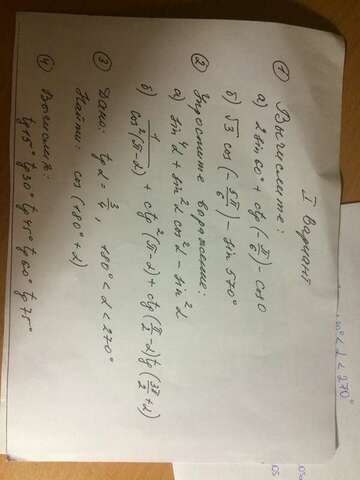 I вариант
① Вычислите:
а) 2 sin 60° + ctg (-π/6) - cos 0
б) √3 cos (-5π/6) - sin 570°
② Упростите выражение:
а) sin⁴α + sin²α cos²α - sin²α
б) 1/cos²(π-α) + ctg²(π-α) + ctg(π/2-α)tg(3π/2+α)
③ Дано: tg α = 3/4, 180° < α < 270°
Найти: cos (180° + α)
④ Вычислить:
tg 15° tg 30° tg 45° tg 60° tg 75°
α < 270°